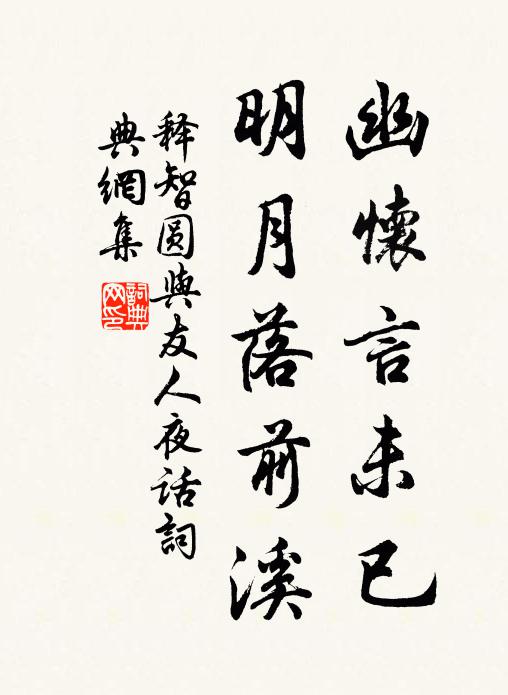 幽懷言未已
明月落前溪
释智圆與友人夜话詞
典網集
詞典网印